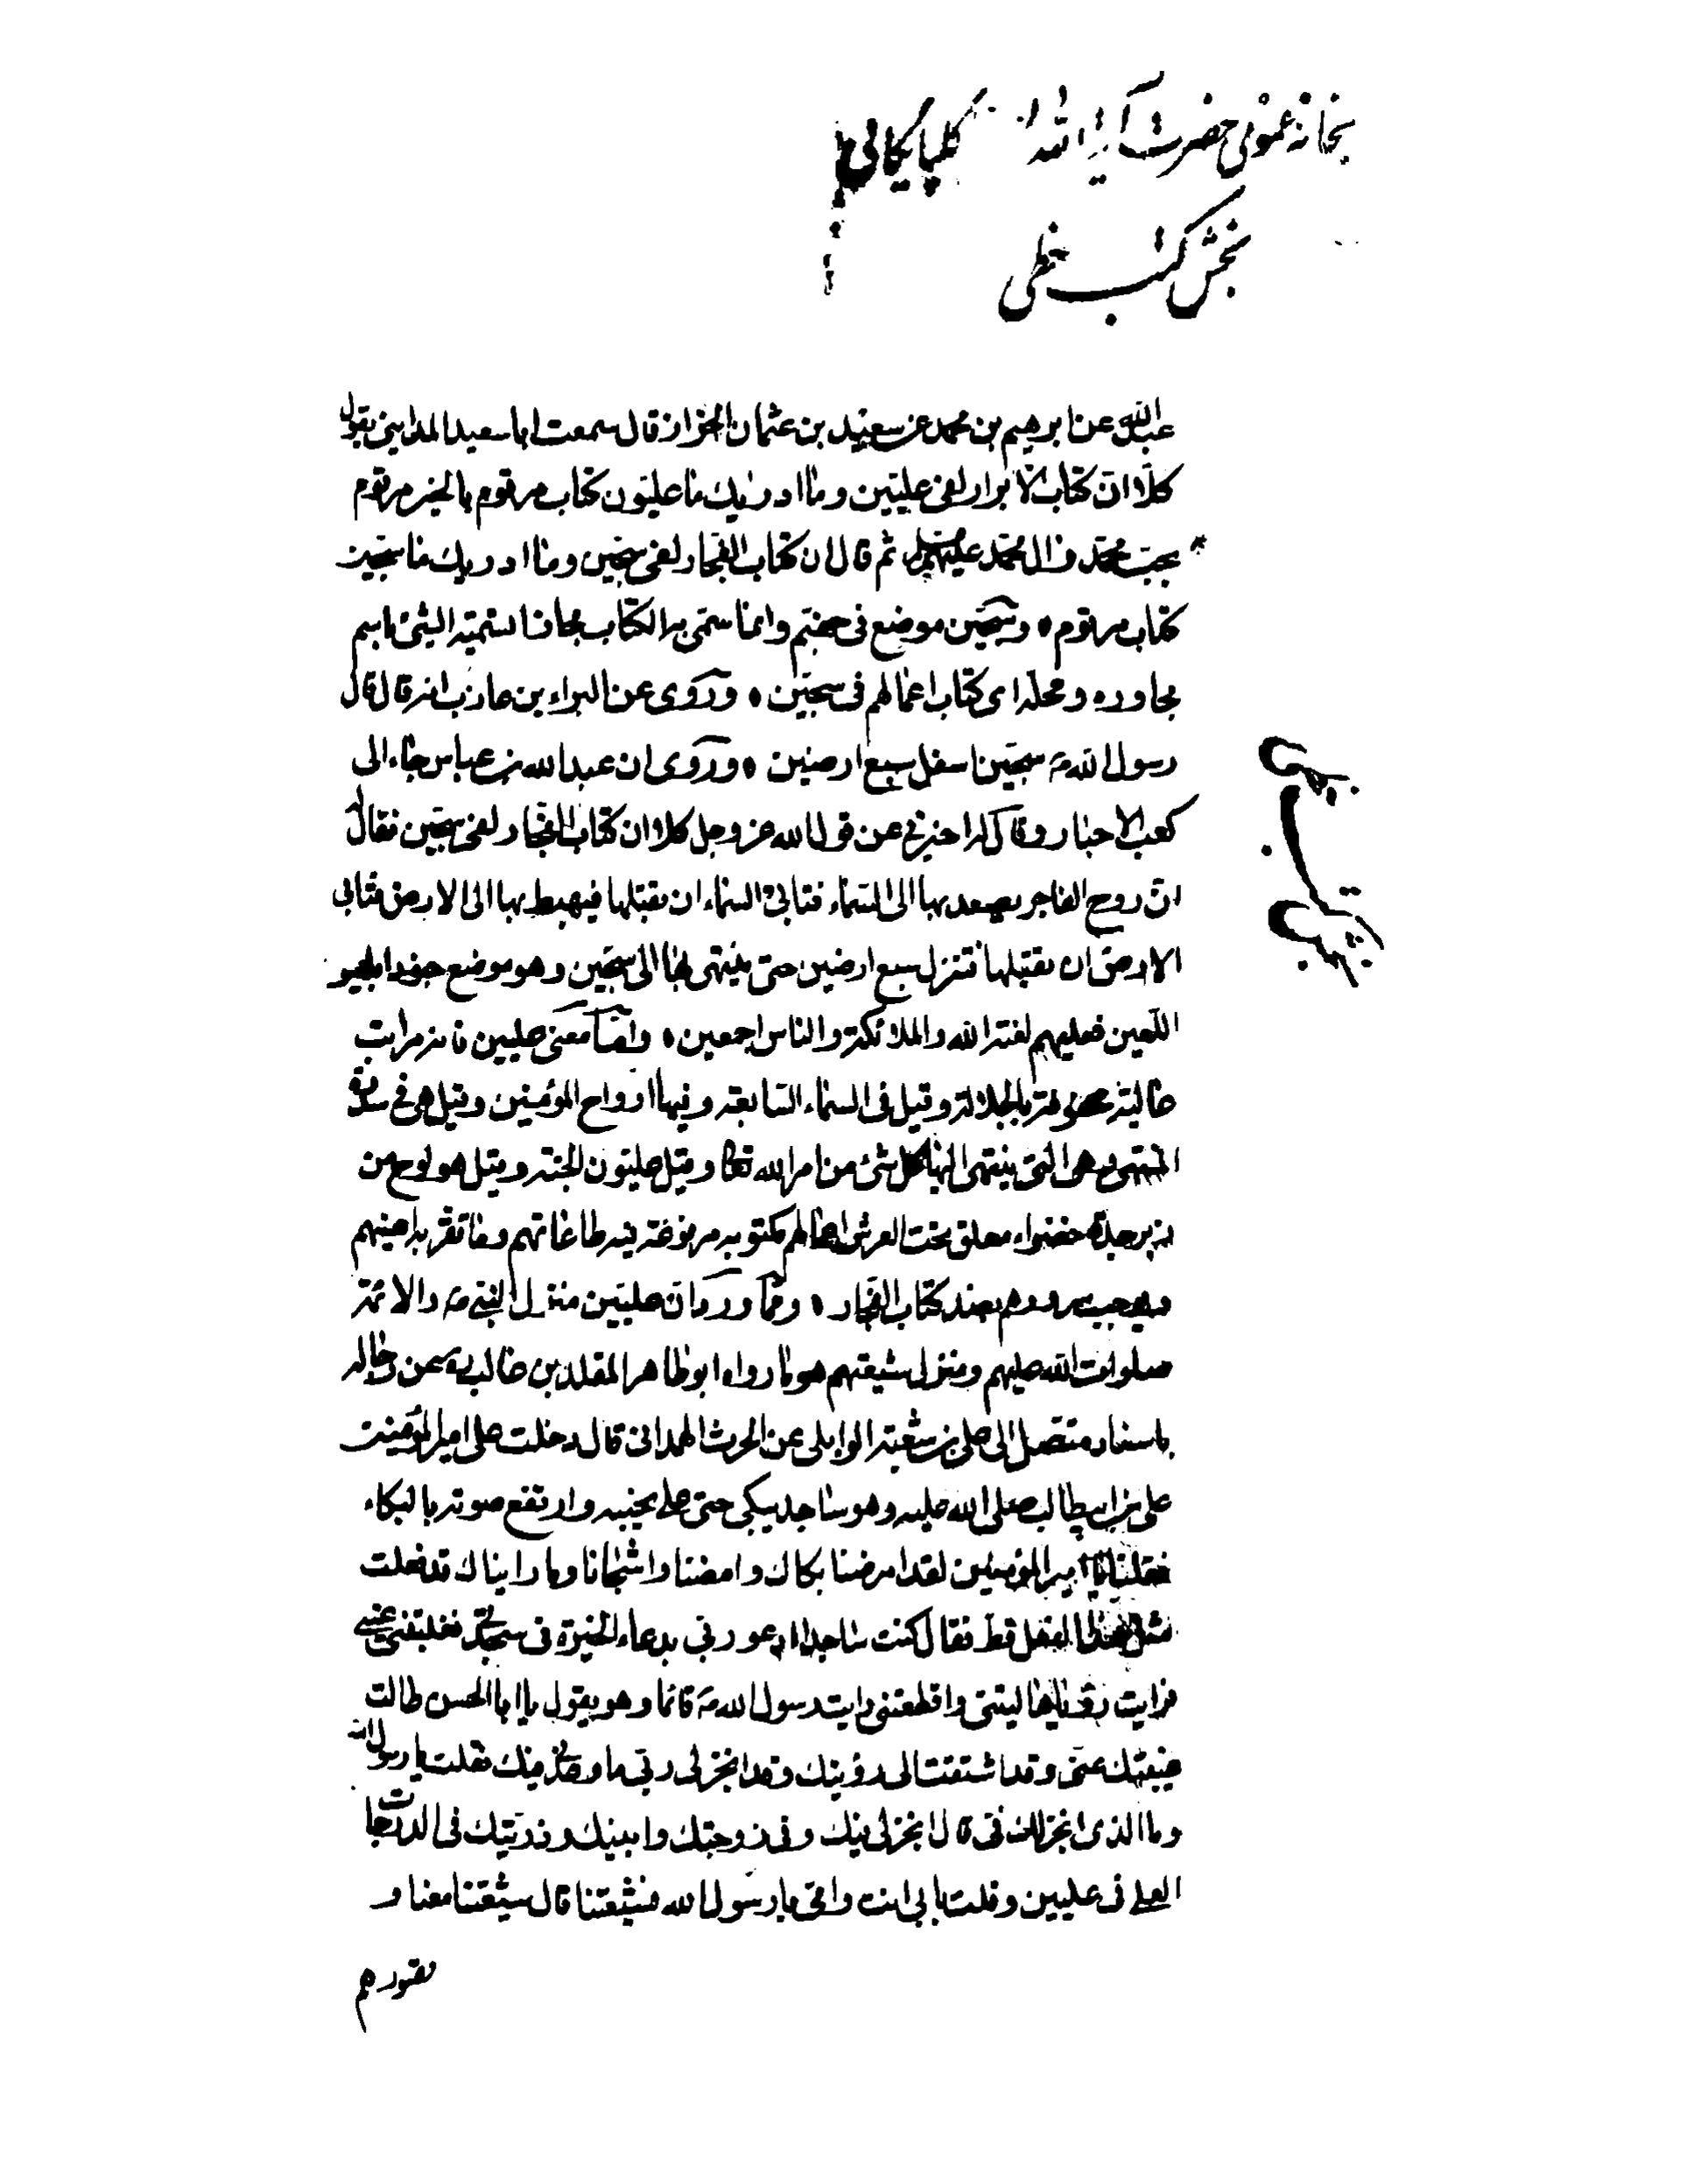 بخانه عمومی حضرت آیة الله ا گلپایگانی
بخش کتب خطی
عبدالله عن ابرهیم بن محمد عن سعید بن عثمان الخزاز قال سمعت ابا سعید المداینی یقول
کلّا انّ کتاب الابرار لفی علیّین وما ادریك ما علیّون کتاب مرقوم بالخیر مرقوم
بحبّ محمّد وال محمّد علیهم ثم قال ان کتاب الفجّار لفی سجّین وما ادریك ما سجّین
کتاب مرقوم وسجّین موضع فی جهنّم وانما سمّی به الکتاب مجازا لتسمیة الشئ باسم
مجاوره ومحلّه ای کتاب اعمالهم فی سجّین وروی عن البراء بن عازب انه قال قال
رسول الله ص سجّین اسفل سبع ارضین وروی ان عبدالله بن عباس جاء الی
کعب الاحبار وقال له اخبرنی عن قول الله عز وجل کلا ان کتاب الفجّار لفی سجّین فقال له
انّ روح الفاجر یصعد بها الی السّماء فتابی السماء ان تقبلها فیهبط بها الی الارض فتابی
الارض ان تقبلها فتنزل سبع ارضین حتی ینتهی بها الی سجّین وهو موضع جنود ابلیس
اللّعین فعلیهم لعنة الله والملائکة والناس اجمعین وامّا معنی علیین فانه مراتب
عالیة محفوفة بالجلالة وقیل فی السماء السّابعة وفیها ارواح المؤمنین وقیل هی فی سدرة
المنتهی وهی التی ینتهی الیها کل شئ من امر الله تعالی وقیل علیّون الجنة وقیل هو لوح من
زبرجدة خضراء معلق تحت العرش اعمالهم مکتوبة مرفوعة فیه طاعاتهم وما تقرّ به اعینهم
ویوجب سرورهم بضد کتاب الفجّار وممّا ورد انّ علیّین منزل النبّی ص والائمة
صلوات الله علیهم ومنزل شیعتهم هو ما رواه ابوطاهر المقلد بن غالب ره عن رجاله
باسناد متّصل الی علی بن شعبة الوابلی عن الحرث الهمدانی قال دخلت علی امیرالمؤمنین
علی بن ابیطالب صلی الله علیه وهو ساجد یبکی حتی علی نحیبه وارتفع صوته بالبکاء
فقلنا یا امیرالمؤمنین لقد امرضنا بکاك وامضنا واشجانا وما رایناك قد فعلت
مثل هذا الفعل قط فقال کنت ساجدا ادعو ربی بدعاء الخیرة فی سجدتی فغلبتنی عینی
فرایت رؤیا هالتنی واقطعتنی رایت رسول الله ص قائما وهو یقول یا ابا الحسن طالت
غیبتك عنی وقد اشتقت الی رؤیتك وقد انجز لی ربّی ما وعدنی فیك فقلت یا رسول الله
وما الذی انجز لك فیّ قال انجز لی فیك وفی زوجتك وابنیك وذریّتك فی الدرجات
العلی فی علیین وقلت بابی انت وامّی یا رسول الله فشیعتنا قال شیعتنا معنا و
قصورهم